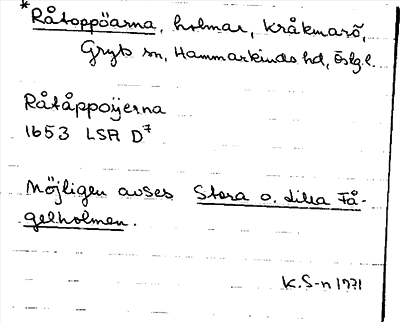 *Råtoppöarna, holmar, Kråkmarö,
Gryts sn, Hammarkinds hd, Östg.l.
Råtåppoÿerna
1653 LSA D⁷
Möjligen avses Stora o. Lilla Få-
gelholmen.
K.S-n 1971